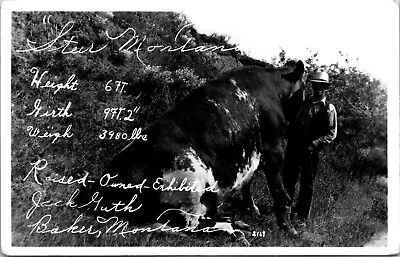 "Steer Montana"
Height 6 FT.
Girth 9 FT. 2"
Weigh 3980 lbs
Raised - Owned - Exhibited
Jack Guth
Baker, Montana
2169